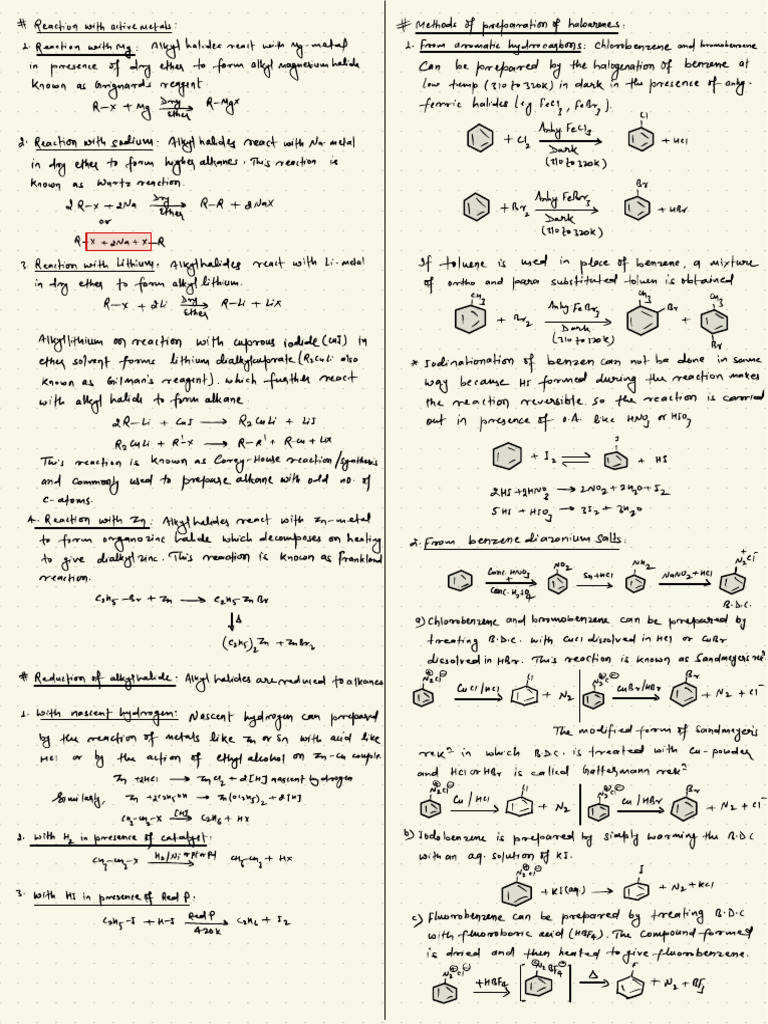 # Reaction with active metals:
1. Reaction with Mg: Alkyl halides react with Mg-metal
in presence of dry ether to form alkyl magnesium halide
known as Grignards reagent.
R-X + Mg Dry ether → R-MgX
2. Reaction with sodium: Alkyl halides react with Na metal
in dry ether to form higher alkanes. This reaction is
known as Wurtz reaction.
2R-X + 2Na Dry ether → R-R + 2NaX
or
R-X + 2Na + X-R
3. Reaction with Lithium. Alkyl halides react with Li-metal
in dry ether to form alkyl lithium.
R-X + 2Li Dry ether → R-Li + LiX
Alkyllithium on reaction with cuprous iodide (CuI) in
ether solvent forms lithium dialkylcuprate (R2CuLi also
known as Gilman's reagent). which further react
with alkyl halide to form alkane.
2R-Li + CuI → R2CuLi + LiI
R2CuLi + R'-X → R-R' + R-Cu + LiX
This reaction is known as Corey-House reaction/synthesis
and commonly used to prepare alkane with odd no. of
C-atoms.
4. Reaction with Zn: Alkyl halides react with Zn-metal
to form organozinc halide which decomposes on heating
to give dialkyl zinc. This reaction is known as frankland
reaction.
C2H5-Br + Zn → C2H5-ZnBr
↓Δ
(C2H5)2Zn + ZnBr2
# Reduction of alkylhalide: Alkyl halides are reduced to alkanes
1. With nascent hydrogen: Nascent hydrogen can prepared
by the reaction of metals like Zn or Sn with acid like
HCl or by the action of ethyl alcohol on Zn-Cu couple.
Zn + 2HCl → ZnCl2 + 2[H] nascent hydrogen
Similarly, Zn + 2C2H5OH → Zn(OC2H5)2 + 2[H]
CH3-CH2-X [H] → C2H6 + HX
2. With H2 in presence of catalyst:
CH3-CH2-X H2/Ni or Pt or Pd → CH3-CH3 + HX
3. With HI in presence of Red P:
C2H5-I + H-I Red P 420K → C2H6 + I2
# Methods of preparation of haloarenes:
1. From aromatic hydrocarbons: Chlorobenzene and bromobenzene
Can be prepared by the halogenation of benzene at
low temp (310 to 320K) in dark in the presence of anhy.
ferric halides (eg FeCl3, FeBr3).
+ Cl2 Anhy FeCl3 Dark (310 to 320K) → Cl + HCl
+ Br2 Anhy FeBr3 Dark (310 to 320K) → Br + HBr
If toluene is used in place of benzene, a mixture
of ortho and para substituted toluen is obtained
CH3 + Br2 Anhy FeBr3 Dark (310 to 320K) → CH3 Br + CH3 Br
* Iodinationation of benzen can not be done in same
way because HI formed during the reaction makes
the reaction reversible. so the reaction is carried
out in presence of O.A. like HNO3 or HIO3
+ I2 ⇌ I + HI
2HI + 2HNO3 → 2NO2 + 2H2O + I2
5HI + HIO3 → 3I2 + 3H2O
2. From benzene diazonium salts:
Conc. HNO3 + Conc. H2SO4 → NO2 Sn+HCl → NH2 NaNO2+HCl → N2+Cl-
B.D.C.
a) Chlorobenzene and bromobenzene can be prepared by
treating B.D.C. with CuCl dissolved in HCl or CuBr
dissolved in HBr. This reaction is known as Sandmeyer's rexn
N2⊕Cl⊖ CuCl/HCl → Cl + N2 | N2⊕Cl⊖ CuBr/HBr → Br + N2 + Cl-
The modified form of Sandmeyer's
rexn in which B.D.C. is treated with Cu-powder
and HCl or HBr is called Gattermann rexn
N2⊕Cl⊖ Cu/HCl → Cl + N2 | N2⊕Cl⊖ Cu/HBr → Br + N2 + Cl-
b) Iodobenzene is prepared by simply warming the B.D.C
with an aq. solution of KI.
N2⊕Cl⊖ + KI(aq) → I + N2 + KCl
c) Fluorobenzene can be prepared by treating B.D.C
with fluoroboric acid (HBF4). The compound formed
is dried and then heated to give fluorobenzene.
N2⊕Cl⊖ +HBF4 → [N2⊕BF4⊖] Δ → F + N2 + BF3